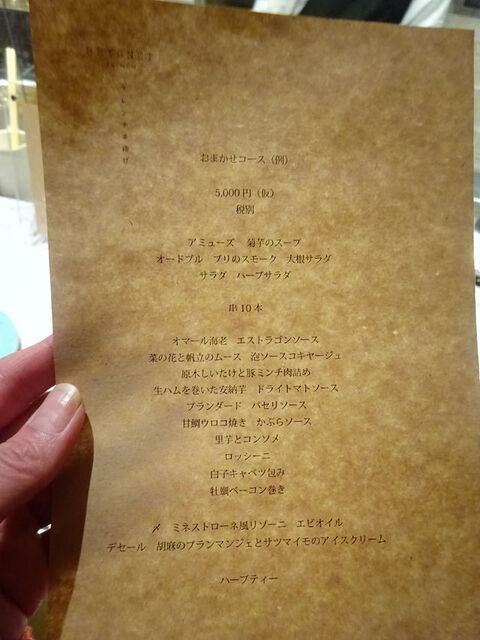 BEIGNET
フレンチ串揚げ
おまかせコース（例）
5,000円（仮）
税別
アミューズ　菊芋のスープ
オードブル　ブリのスモーク　大根サラダ
サラダ　ハーブサラダ
串10本
オマール海老　エストラゴンソース
菜の花と帆立のムース　泡ソースコキヤージュ
原木しいたけと豚ミンチ肉詰め
生ハムを巻いた安納芋　ドライトマトソース
ブランダード　パセリソース
甘鯛ウロコ焼き　かぶらソース
里芋とコンソメ
ロッシーニ
白子キャベツ包み
牡蠣ベーコン巻き
〆　ミネストローネ風リゾーニ　エビオイル
デセール　胡麻のブランマンジェとサツマイモのアイスクリーム
ハーブティー